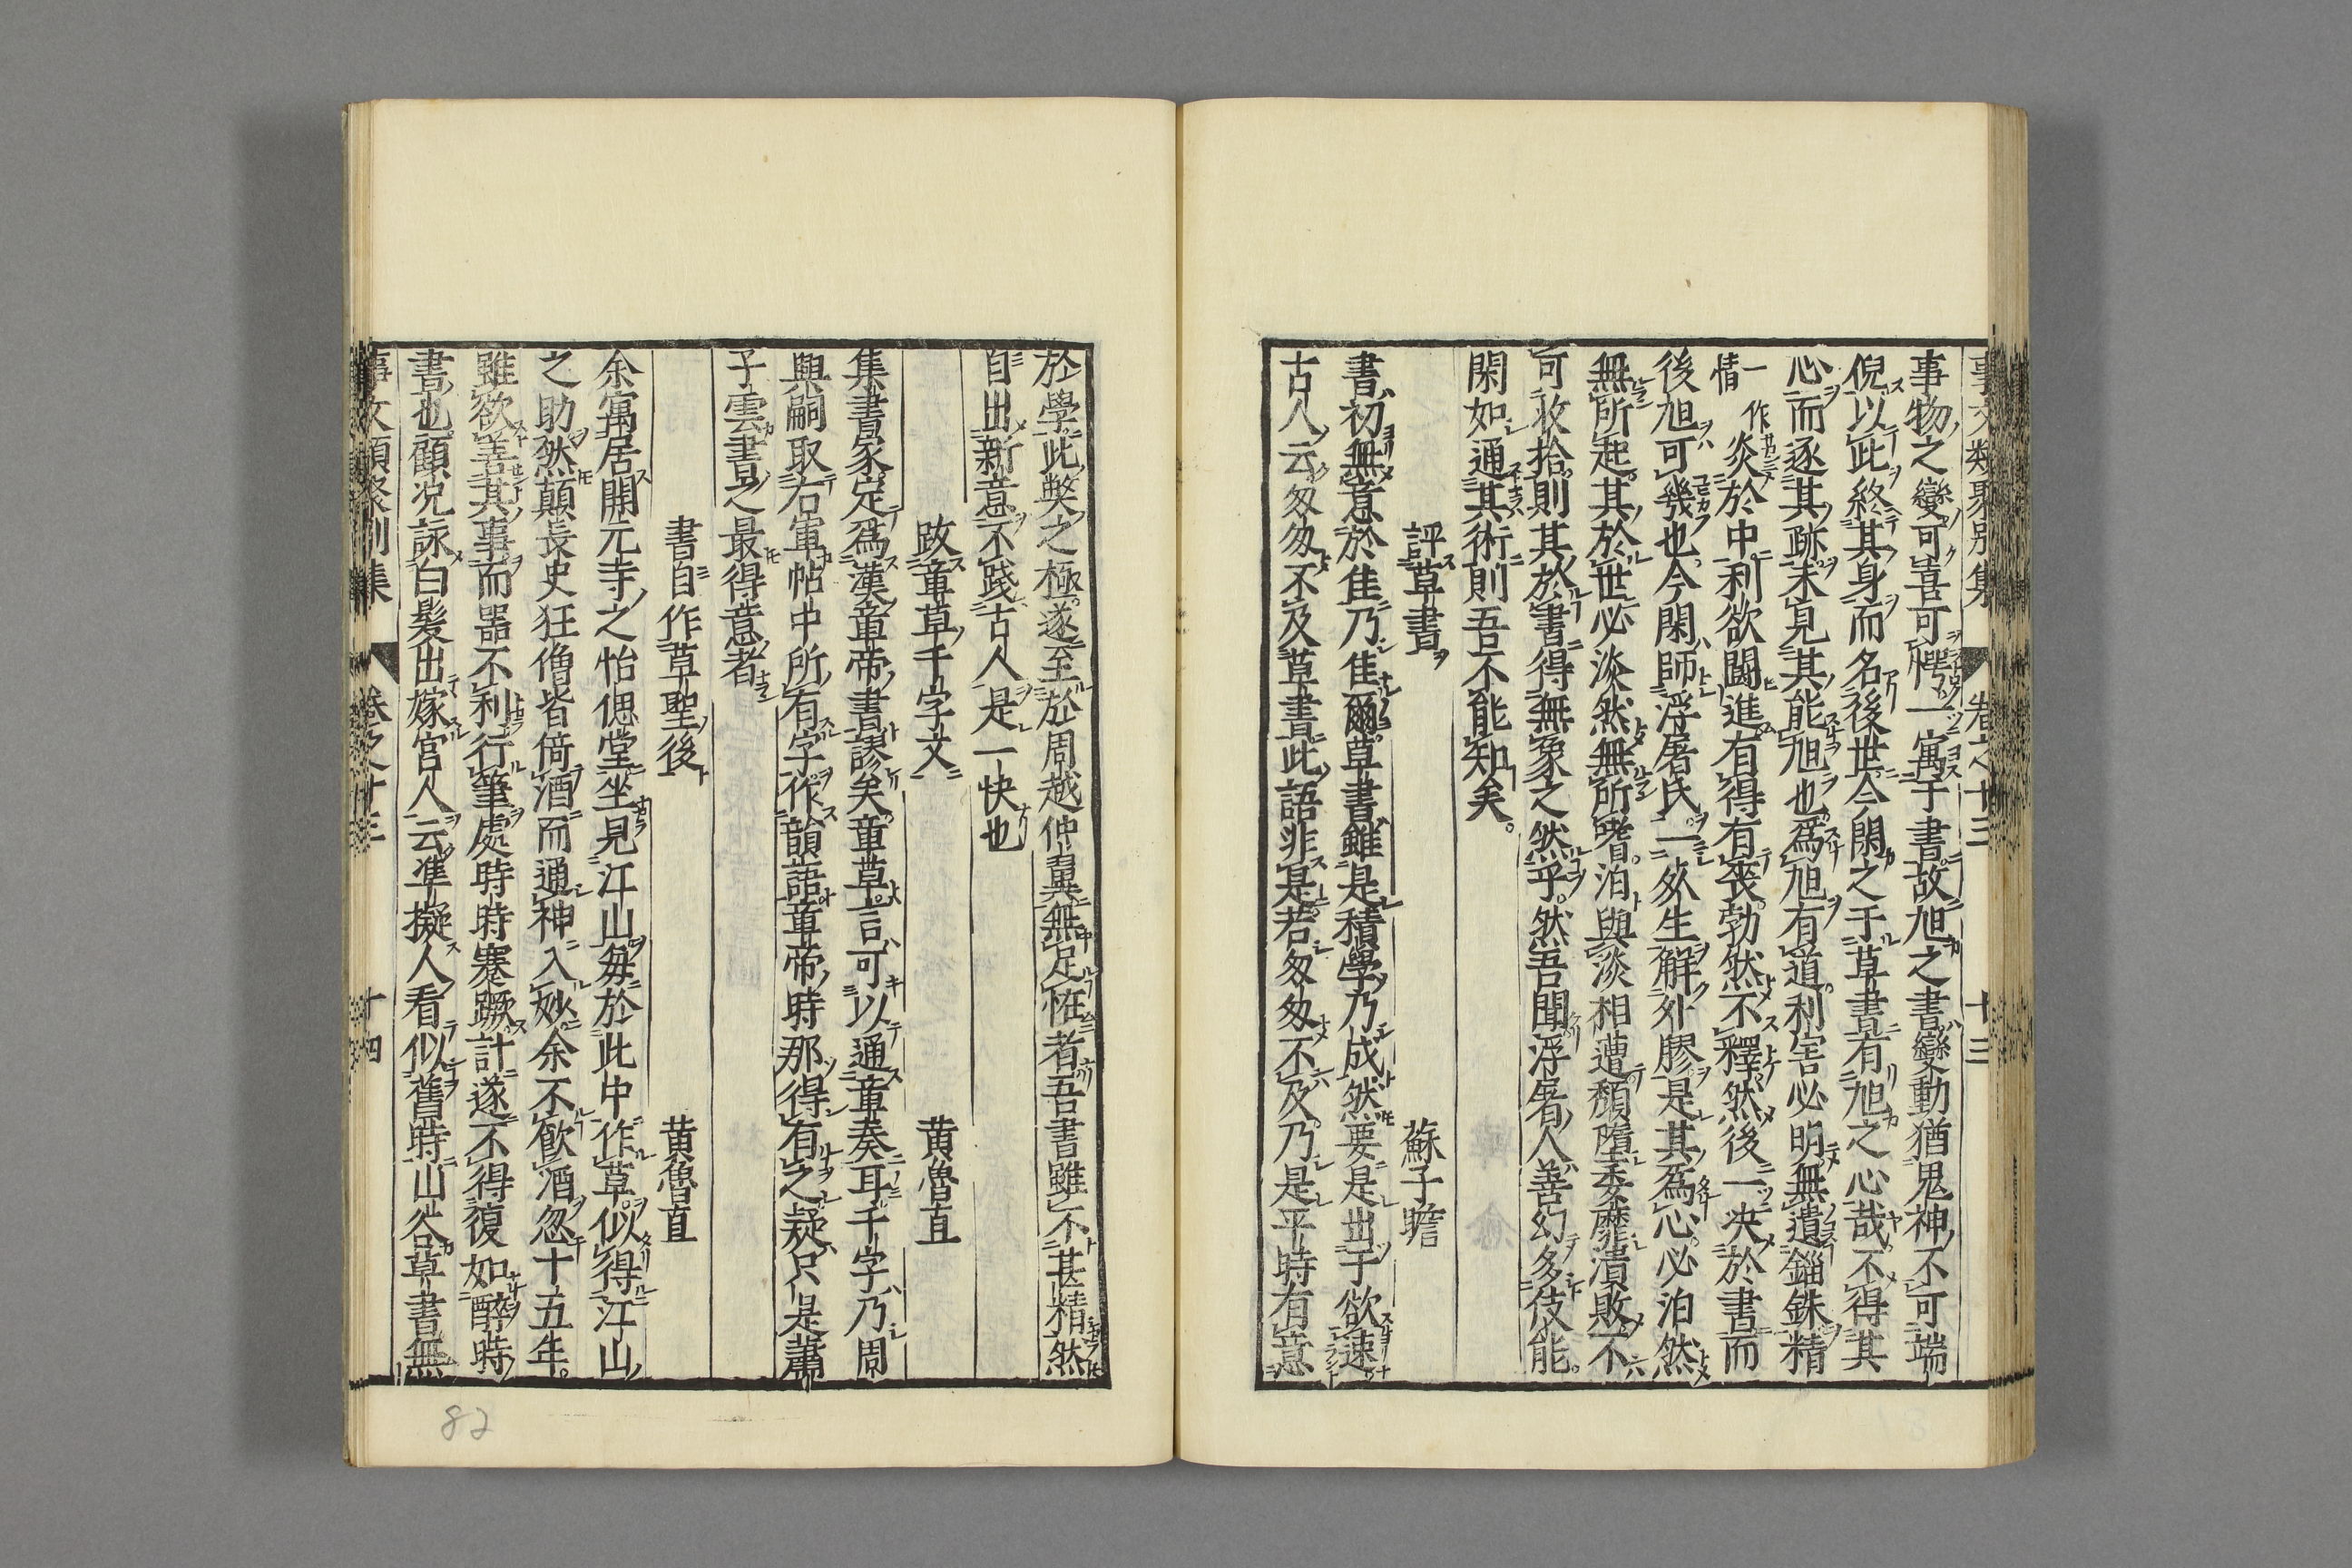 事文類聚別集 卷之十三 十三
事物之變可喜可愕一寓于書故旭之書變動猶鬼神不可端
倪以此終其身而名後世今閑之于草書有旭之心哉不得其
心而逐其跡未見其能旭也爲旭有道利害必明無遺錙銖精
一作情炎於中利欲鬪進有得有喪勃然不釋然後一決於書而
後旭可幾也今閑師浮屠氏一死生解外膠是其爲心必泊然
無所起其於世必淡然無所嗜泊與淡相遭頹墮委靡潰敗不
可收拾則其於書得無象之然乎然吾聞浮屠人善幻多伎能
閑如通其術則吾不能知矣
評草書 蘇子瞻
書初無意於佳乃佳爾草書雖是積學乃成然要是出于欲速
古人云匆匆不及草書此語非是若匆匆不及乃是平時有意
於學此弊之極遂至於周越仲翼無足恠者吾書雖不甚精然
自出新意不踐古人是一快也
跋章草千字文 黄魯直
集書家定爲漢章帝書謬矣章草言可以通章奏耳千字乃周
與嗣取右軍帖中所有字作韻語章帝時那得有之疑只是蕭
子雲書之最得意者
書自作草聖後 黄魯直
余寓居開元寺之怡偲堂坐見江山每於此中作草似得江山
之助然顛長史狂僧皆倚酒而通神入妙余不飮酒忽十五年
雖欲善其事而器不利行筆處時時蹇蹶計遂不得復如醉時
書也顧况詠白髮出嫁宮人云準擬人看似舊時山谷草書無
事文類聚別集 卷之十三 十四
82